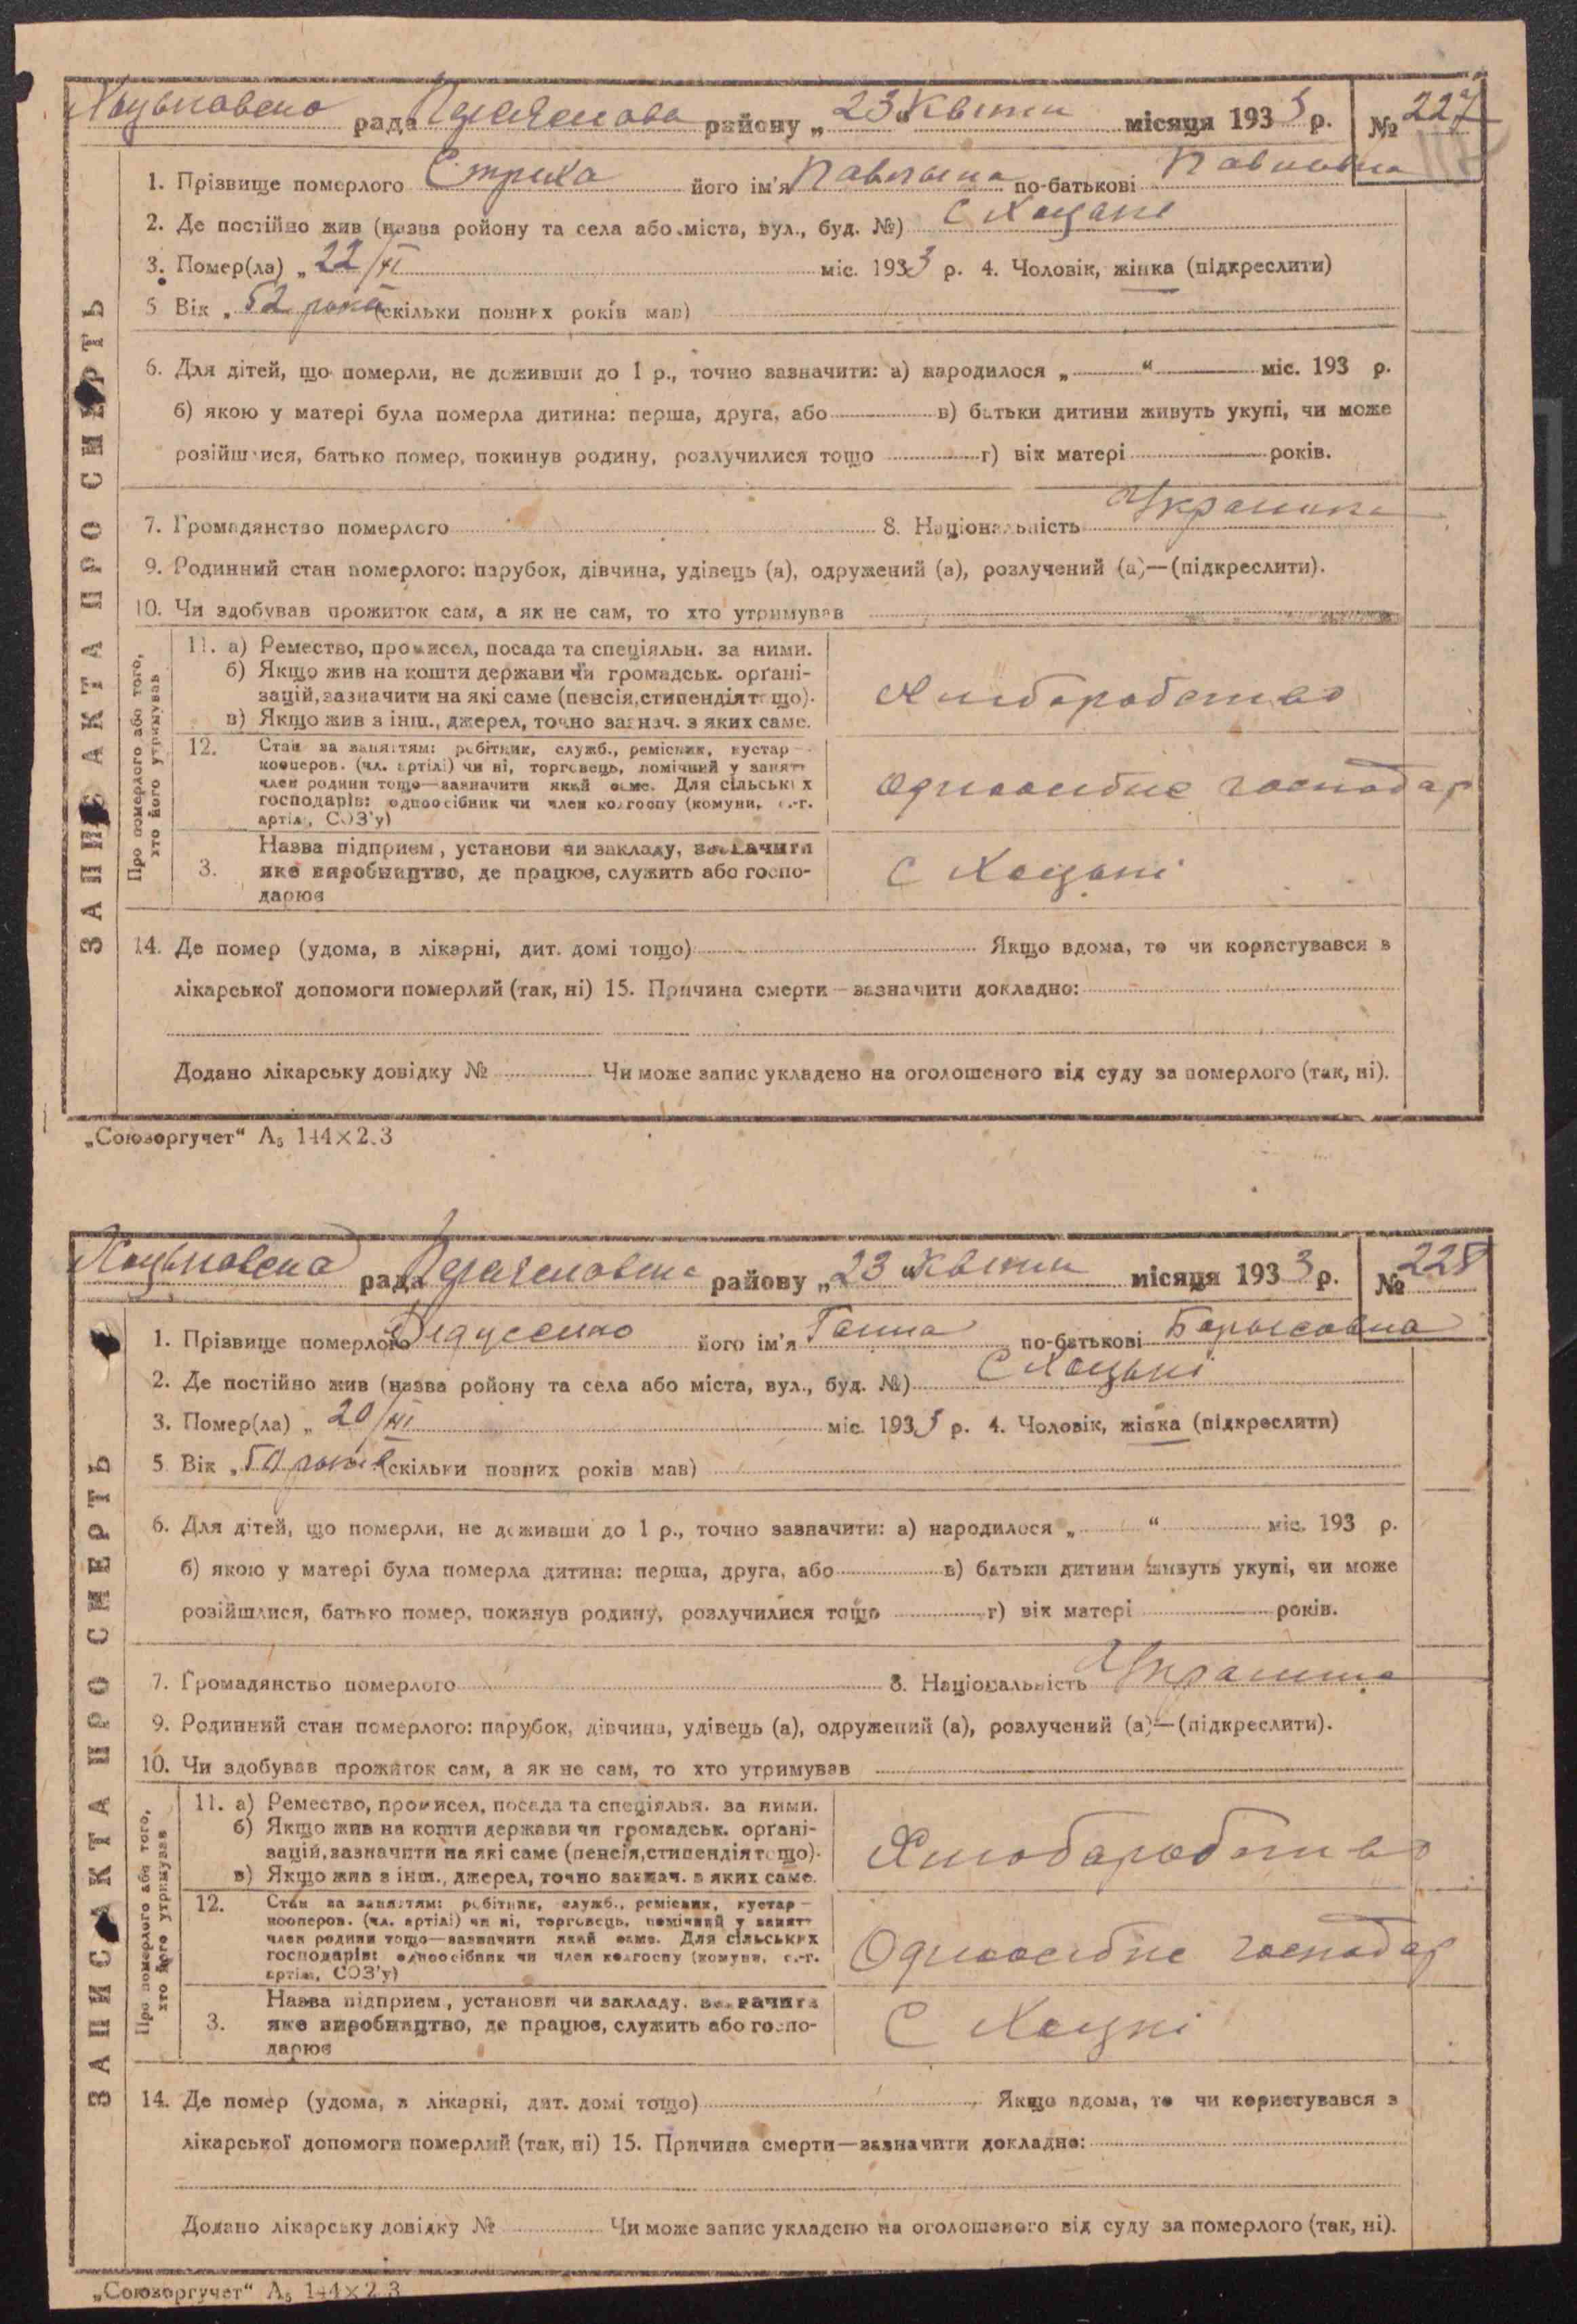 рада району „23“ Квітн місяця 1933 р. № 227
1. Прізвище померлого Стриха його ім'я Павлына по-батькові Павловна
2. Де постійно жив (назва ройону та села або міста, вул., буд. №) С Хоцьки
3. Помер(ла) „ 22/ міс. 1933 р. 4. Чоловік, жінка (підкреслити)
5 Вік „ 52 роки (скільки повних років мав)
6. Для дітей, що померли, не доживши до 1 р., точно зазначити: а) народилося „ “ міс. 193 р.
б) якою у матері була померла дитина: перша, друга, або в) батьки дитини живуть укупі, чи може
розійшлися, батько помер, покинув родину, розлучилися тощо г) вік матері років.
7. Громадянство померлого 8. Національність Украинка
9. Родинний стан померлого: парубок, дівчина, удівець (а), одружений (а), розлучений (а)—(підкреслити).
10. Чи здобував прожиток сам, а як не сам, то хто утримував
ЗАПИС АКТА ПРО СМЕРТЬ
Про померлого або того,
хто його утримував
11. а) Ремество, промисел, посада та спеціяльн. за ними.
б) Якщо жив на кошти держави чи громадськ. орґані-
зацій, зазначити на які саме (пенсія, стипендія тощо).
в) Якщо жив з інш., джерел, точно зазнач. з яких саме.
Хлиборобство
12. Стан за заняттям: робітник, служб., ремісник, кустар—
кооперов. (чл. артілі) чи ні, торговець, помічний у занятт
член родини тощо—зазначити який саме. Для сільських
господарів: одноосібник чи член колгоспу (комуни, с.-г.
артіл, СОЗ'у)
одноосибне господар
Назва підприєм, установи чи закладу, зазначити
3. яке виробництво, де працює, служить або госпо-
дарює
С Хоцьки
14. Де помер (удома, в лікарні, дит. домі тощо) Якщо вдома, то чи користувався з
лікарської допомоги померлий (так, ні) 15. Причина смерти—зазначити докладно:
Додано лікарську довідку № Чи може запис укладено на оголошеного від суду за померлого (так, ні).
„Союзоргучет“ А₅ 144×2.3
рада району „23“ Квітн місяця 1933 р. № 228
1. Прізвище померлого його ім'я Ганна по-батькові Борысовна
2. Де постійно жив (назва ройону та села або міста, вул., буд. №) С Хоцьки
3. Помер(ла) „ 20/ міс. 1933 р. 4. Чоловік, жінка (підкреслити)
5. Вік „ років (скільки повних років мав)
6. Для дітей, що померли, не доживши до 1 р., точно зазначити: а) народилося „ “ міс. 193 р.
б) якою у матері була померла дитина: перша, друга, або в) батьки дитини живуть укупі, чи може
розійшлися, батько помер, покинув родину, розлучилися тощо г) вік матері років.
7. Громадянство померлого 8. Національність Украинка
9. Родинний стан померлого: парубок, дівчина, удівець (а), одружений (а), розлучений (а)—(підкреслити).
10. Чи здобував прожиток сам, а як не сам, то хто утримував
ЗАПИС АКТА ПРО СМЕРТЬ
Про померлого або того,
хто його утримував
11. а) Ремество, промисел, посада та спеціяльн. за ними.
б) Якщо жив на кошти держави чи громадськ. орґані-
зацій, зазначити на які саме (пенсія, стипендія тощо).
в) Якщо жив з інш., джерел, точно зазнач. з яких саме.
Хлиборобство
12. Стан за заняттям: робітник, служб., ремісник, кустар—
кооперов. (чл. артілі) чи ні, торговець, помічний у занятт
член родини тощо—зазначити який саме. Для сільських
господарів: одноосібник чи член колгоспу (комуни, с.-г.
артіл, СОЗ'у)
Одноосибне господар
Назва підприєм, установи чи закладу, зазначити
3. яке виробництво, де працює, служить або госпо-
дарює
С Хоцки
14. Де помер (удома, в лікарні, дит. домі тощо) Якщо вдома, то чи користувався з
лікарської допомоги померлий (так, ні) 15. Причина смерти—зазначити докладно:
Додано лікарську довідку № Чи може запис укладено на оголошеного від суду за померлого (так, ні).
„Союзоргучет“ А₅ 144×2.3